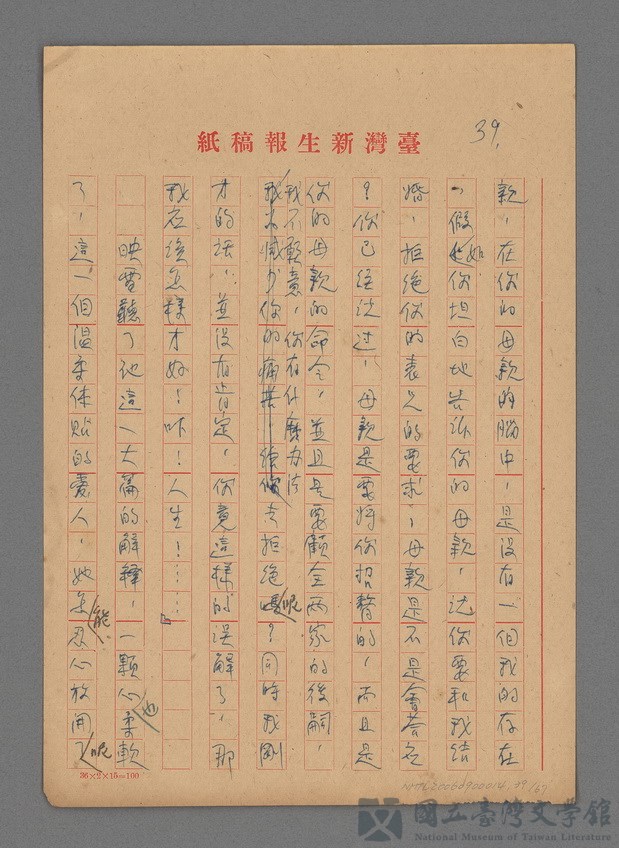 39.
臺灣新生報稿紙
親，在你的母親的腦中，是沒有一個我的存在
，假如你坦白地告訴你的母親，說你要和我結
婚，拒絕你的表兄的要求，母親是不是會荅應
？你已經說过，母親是要將你招贅的，而且是
你的母親的命令，並且是要顧全兩家的後嗣，
我不願意，你有什麼办法
我為減少你的痛苦，給你去拒絕嗎呢？同時我剛
才的話，並没有肯定，你竟這樣的误解了，那
我应该怎樣才好！咔！人生！……』
映雪聽了他這一大篇的解釋，一顆心也柔軟
了，這一個温柔体贴的愛人，她怎能忍心放開了呢
36×2×15=100
NMTL20050900014 39/67
國立臺灣文学館
National Museum of Taiwan Literature